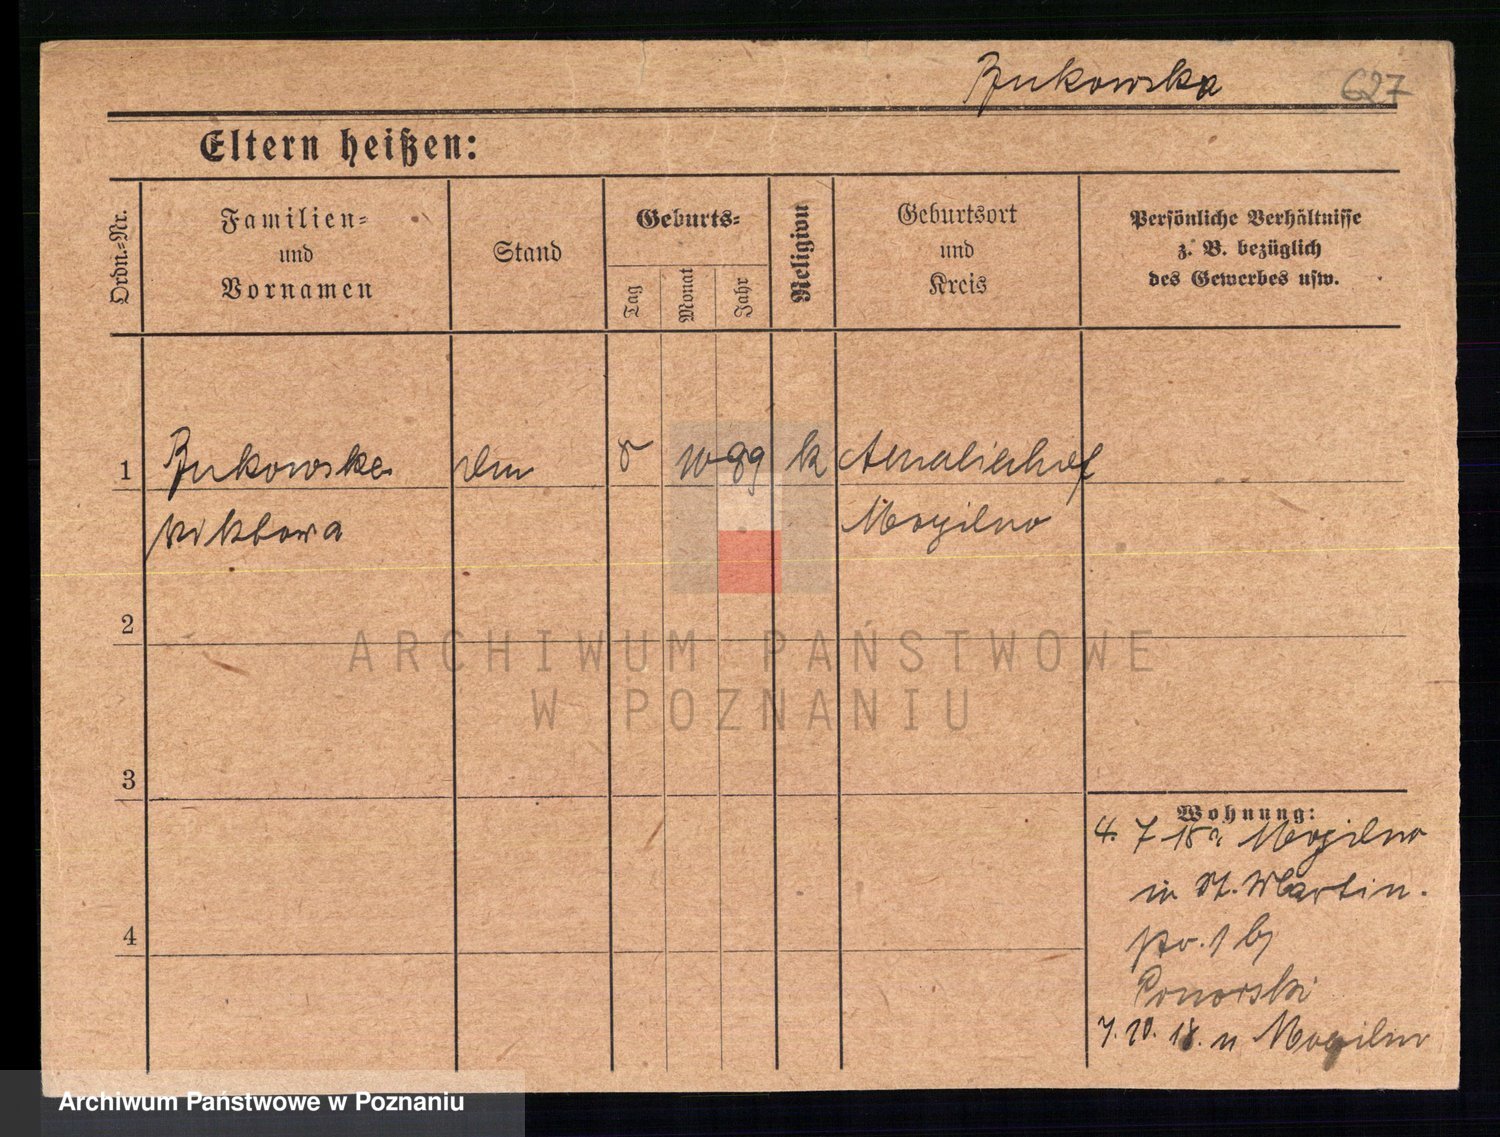 Bukowska 627
Eltern heißen:
Ordn.-Nr.
Familien-
und
Vornamen
Stand
Geburts-
Tag
Monat
Jahr
Religion
Geburtsort
und
Kreis
Persönliche Verhältnisse
z. B. bezüglich
des Gewerbes usw.
1 Bukowska 8 10 99 k Amalienhof
Wiktorya Mogilno
2
ARCHIWUM PAŃSTWOWE
W POZNANIU
3
Wohnung:
4. 7 18 a Mogilno
in St. Martin.
4
Ponorski
7. 10. 18. n Mogilno
Archiwum Państwowe w Poznaniu